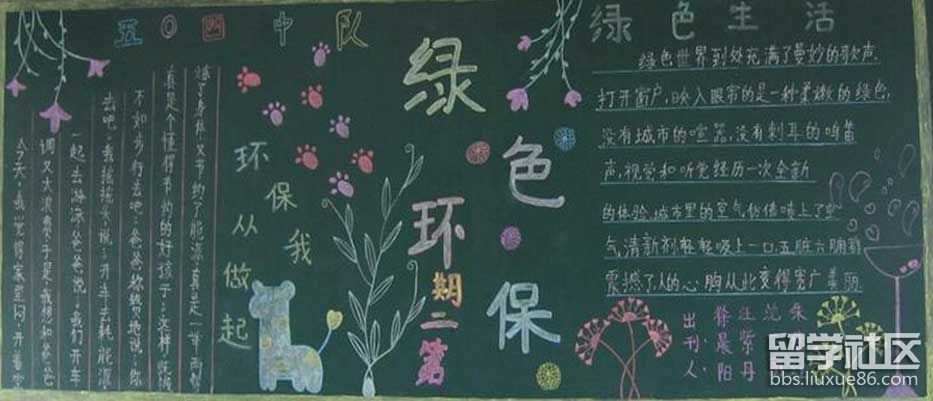 五〇四中队
绿色环保
第二期
环保从我做起
今天,我觉得家里闷,开着空
调又太浪费于是,我想和爸爸
一起去游泳,爸爸说:我们开车
去吧,我摇摇头说:开车去耗能源
不如步行去吧,爸爸称赞地说:你
真是个懂得节约的好孩子,这样既锻
炼了身体,又节约了能源,真是一举两得
绿色生活
绿色世界到处充满了曼妙的歌声,
打开窗户,映入眼帘的是一种柔嫩的绿色,
没有城市的喧嚣,没有刺耳的鸣笛
声,视觉和听觉经历一次全新
的体验,城市里的空气仿佛喷上了空
气清新剂轻轻吸上一口五脏六腑
震撼了人的心胸从此变得宽广美丽
出刊人:
晨阳
汪紫丹
留学社区
bbs.liuxue86.com